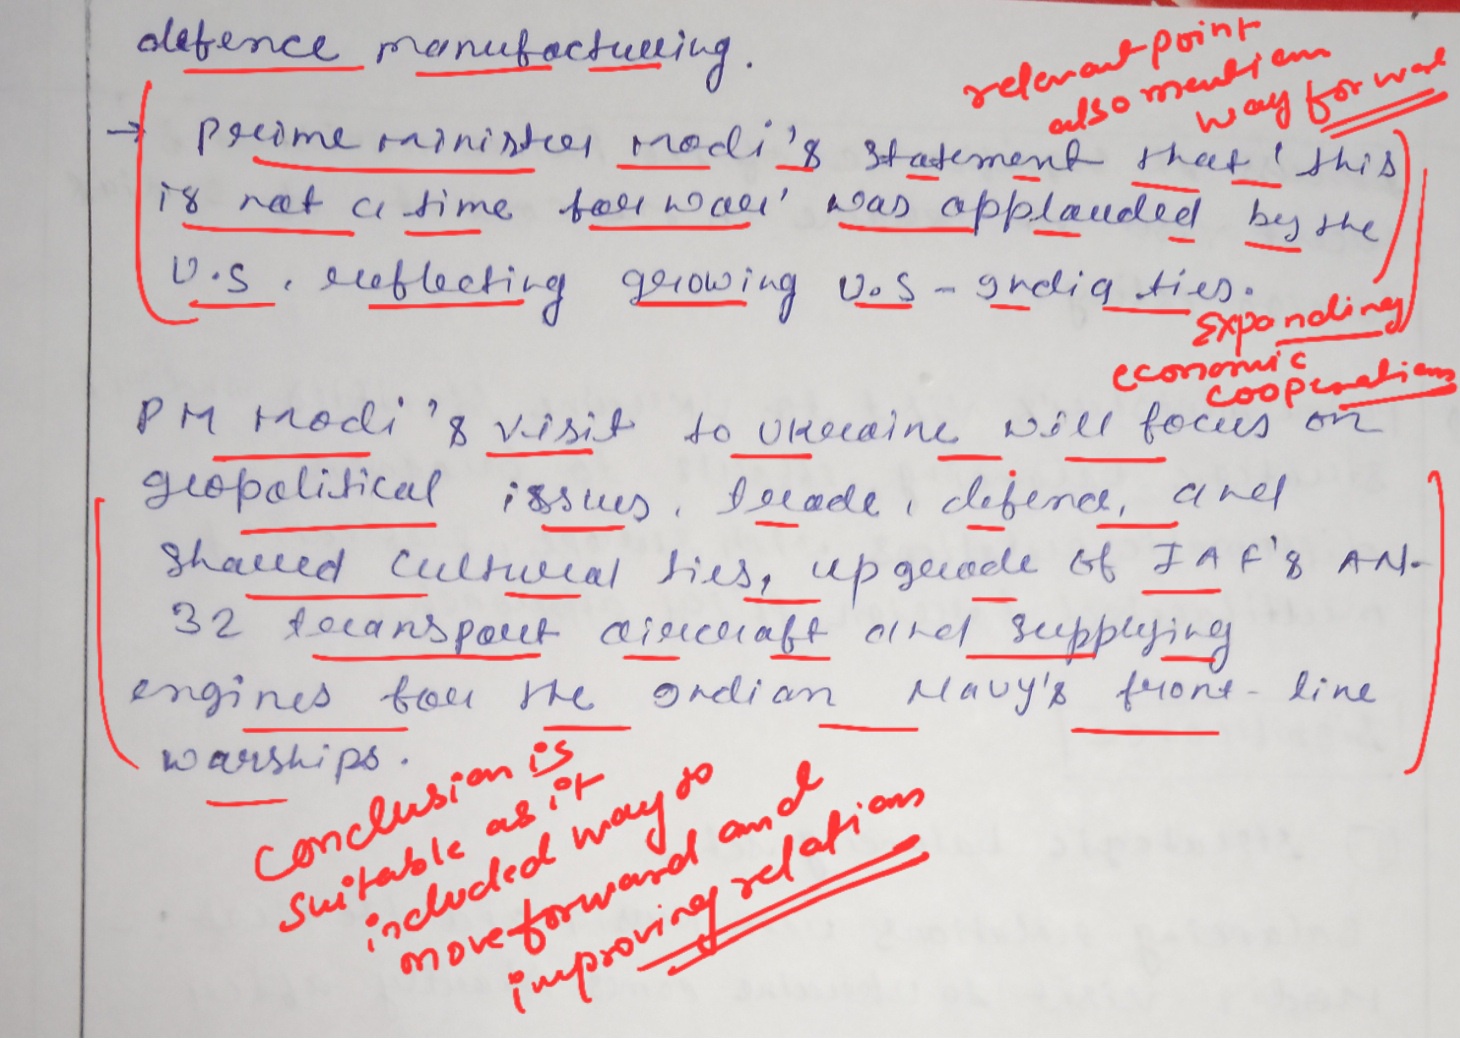 defence manufacturing.
relevant point
also mention
way forward
→ Prime minister modi's statement that 'this
is not a time for war' was applauded by the
U.S, reflecting growing U.S - India ties.
Expanding
economic
cooperation
PM Modi's visit to Ukraine will focus on
geopolitical issues, trade, defence, and
shared cultural ties, upgrade of IAF's AN-
32 transport aircraft and supplying
engines for the Indian Navy's front-line
warships.
conclusion is
suitable as it
included way to
move forward and
improving relations